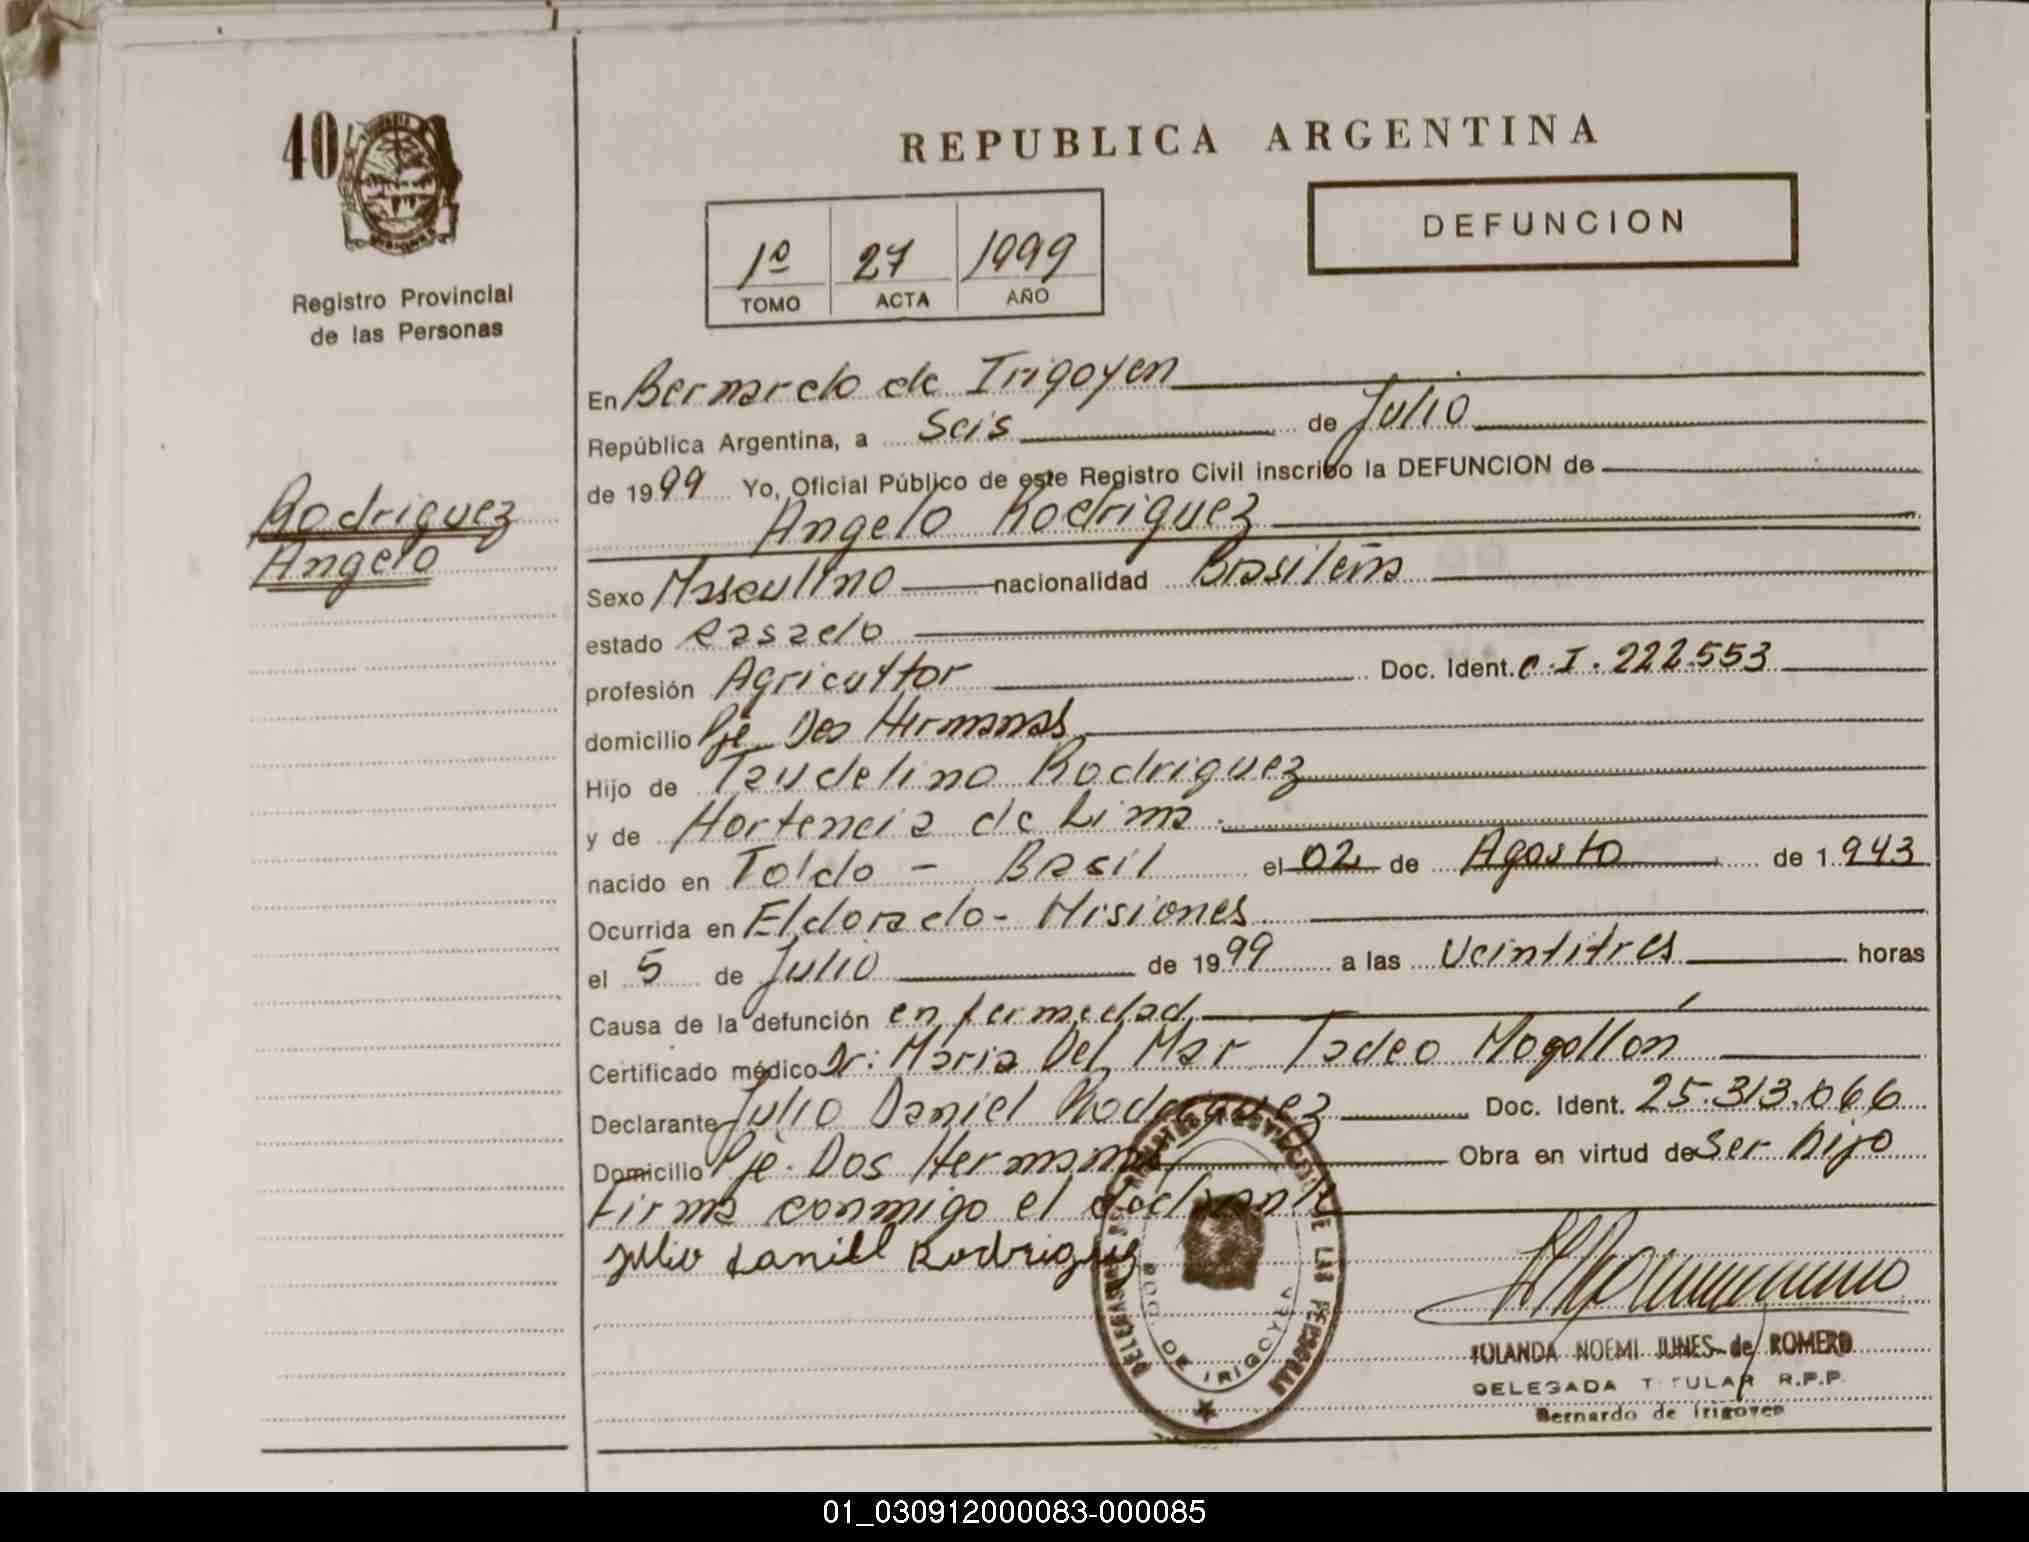 40
Registro Provincial
de las Personas
Rodriguez
Angelo
REPUBLICA ARGENTINA
DEFUNCION
1º 27 1999
TOMO ACTA AÑO
En Bernardo de Irigoyen
República Argentina, a Seis de Julio
de 1999 Yo, Oficial Público de este Registro Civil inscribo la DEFUNCION de
Angelo Rodriguez
Sexo Masculino nacionalidad Brasileña
estado casado
profesión Agricultor Doc. Ident. C.I. 222.553
domicilio Pje Dos Hermanas
Hijo de Taudelino Rodriguez
y de Hortencia de Lima.
nacido en Toldo - Brasil el 02 de Agosto de 1.943
Ocurrida en Eldorado - Misiones
el 5 de Julio de 1999 a las Veintitres horas
Causa de la defunción enfermedad
Certificado médico Dr: Maria Del Mar Tadeo Mogollon
Declarante Julio Daniel Rodriguez Doc. Ident. 25.313.066
Domicilio Pje. Dos Hermanas Obra en virtud de Ser hijo
Firma conmigo el declarante
Julio Daniel Rodriguez
DE LAS PERSONAS
BDO. DE IRIGOYEN
YOLANDA NOEMI JUNES de ROMERO
DELEGADA TITULAR R.P.P.
Bernardo de Irigoyen
01_030912000083-000085